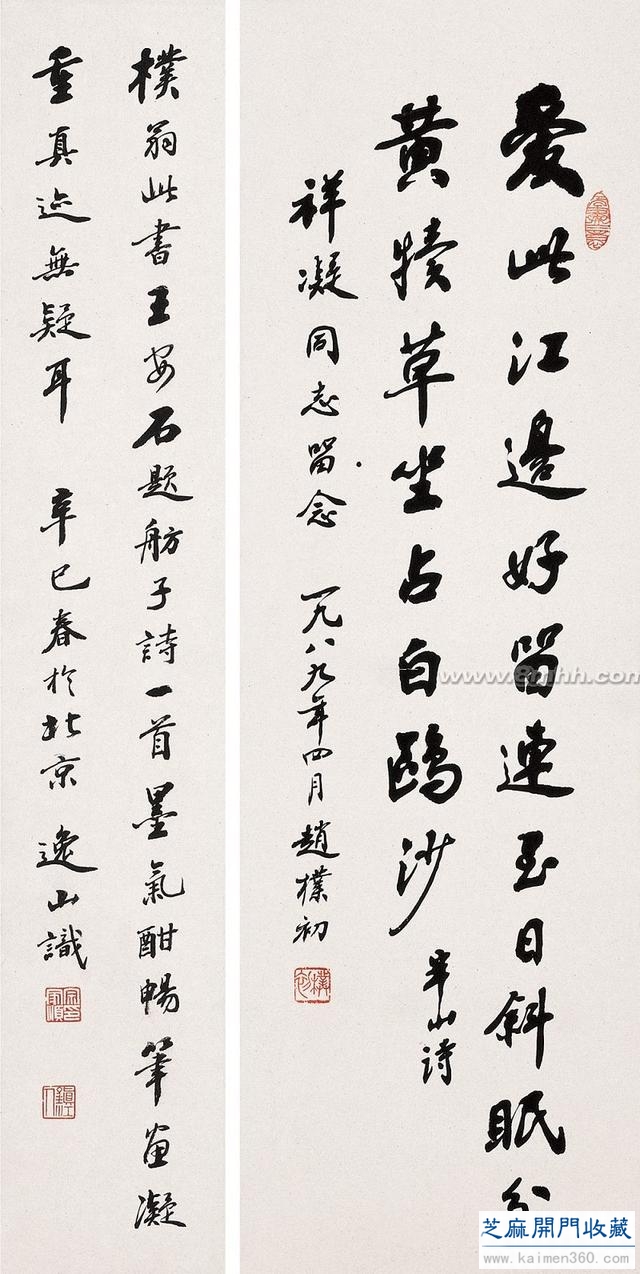 愛此江邊好留連至日斜眠分
黃犢草坐占白鷗沙 半山诗
祥凝同志留念 一九八九年四月 趙樸初
樸初
樸翁此書王安石題舫子詩一首墨氣酣暢筆畫凝
重真迹無疑耳 辛巳春於北京 逸山識
芝麻開門收藏
www.kaimen360.com